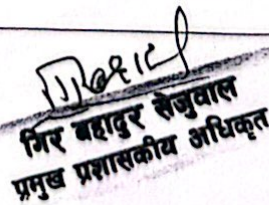 गिर बहादुर सेजुवाल
प्रमुख प्रशासकीय अधिकृत